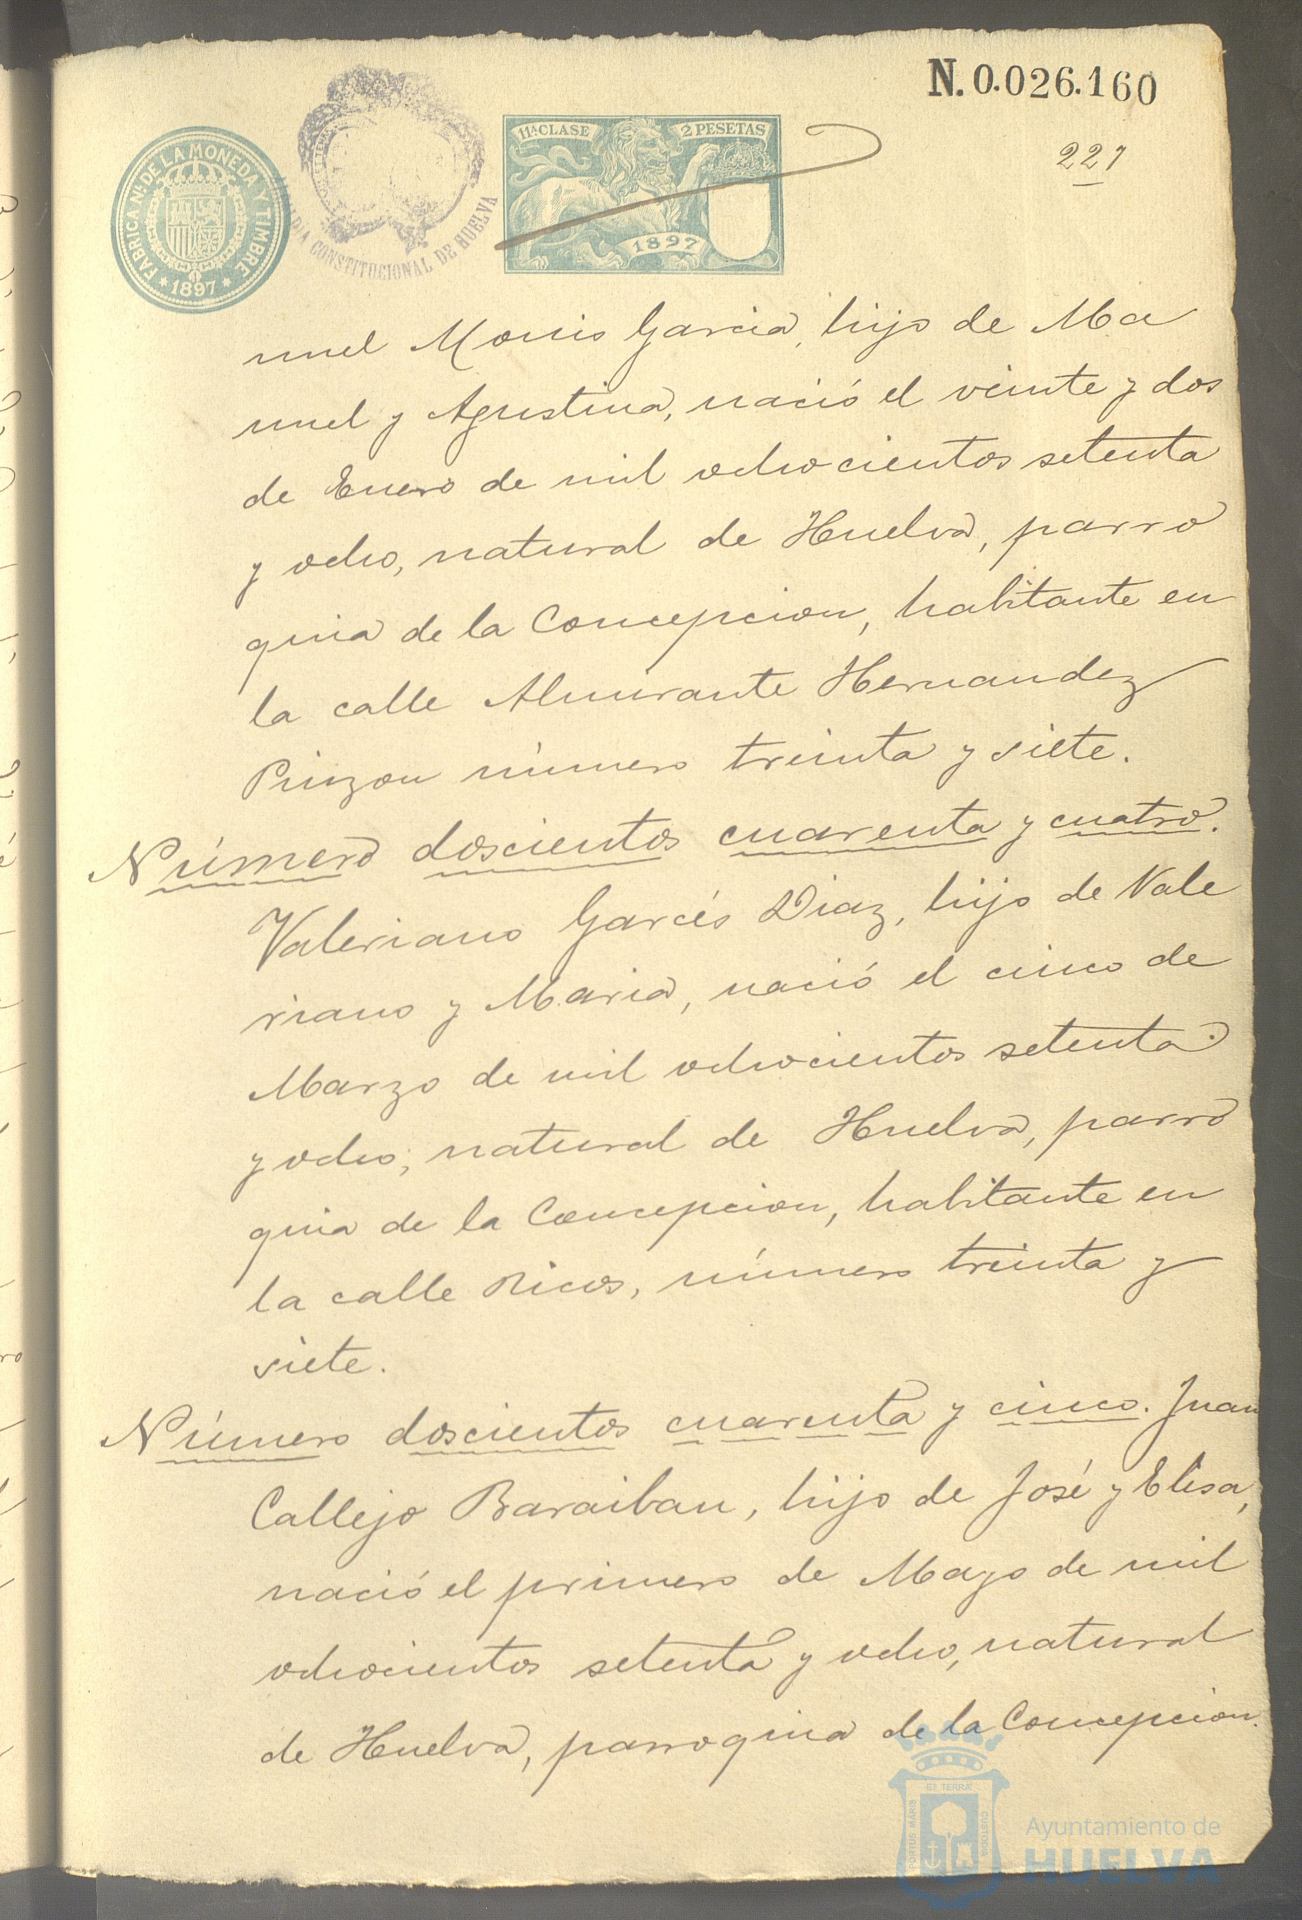 N. 0.026.160
221
FABRICA NL. DE LA MONEDA Y TIMBRE
* 1897 *
CONSTITUCIONAL DE HUELVA
11ª CLASE 2 PESETAS
1897
nuel Monis Garcia, hijo de Ma
nuel y Agustina, nació el veinte y dos
de Enero de mil ochocientos setenta
y ocho, natural de Huelva, parro
quia de la Concepcion, habitante en
la calle Almirante Hernandez
Pinzon número treinta y siete.
Número doscientos cuarenta y cuatro.
Valeriano Garcés Diaz, hijo de Vale
riano y Maria, nació el cinco de
Marzo de mil ochocientos setenta
y ocho, natural de Huelva, parro
quia de la Concepcion, habitante en
la calle Ricos, número treinta y
siete.
Número doscientos cuarenta y cinco. Juan
Callejo Baraiban, hijo de José y Elisa,
nació el primero de Mayo de mil
ochocientos setenta y ocho, natural
de Huelva, parroquia de la Concepcion.
ET TERRA
PORTUS MARIS
CUSTODIA
Ayuntamiento de
HUELVA